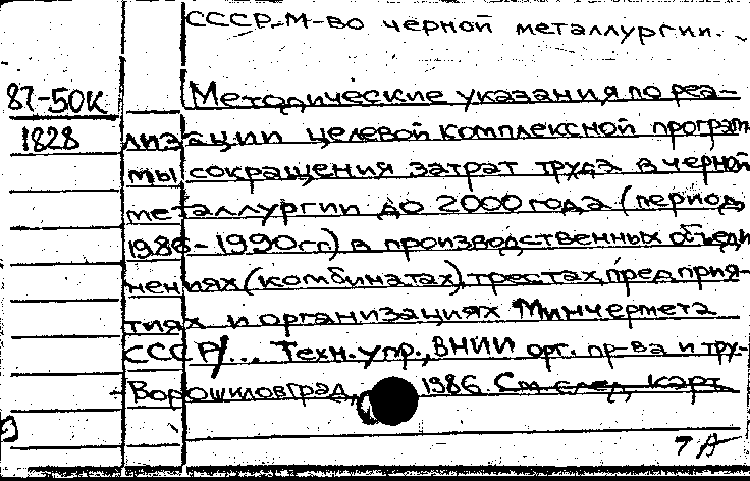 СССР. М-во черной металлургии.
87-50к Методические указания по реа-
1828 лизации целевой комплексной програм
мы сокращения затрат труда в черной
металлургии до 2000 года (период
1986-1990гг) в производственных объеди
нениях (комбинатах), трестах, предприя-
тиях и организациях Минчермета
СССР/... Техн. упр., ВНИИ орг. пр-ва и тру-
-Ворошиловград, 1986. См след. карт.
7 А